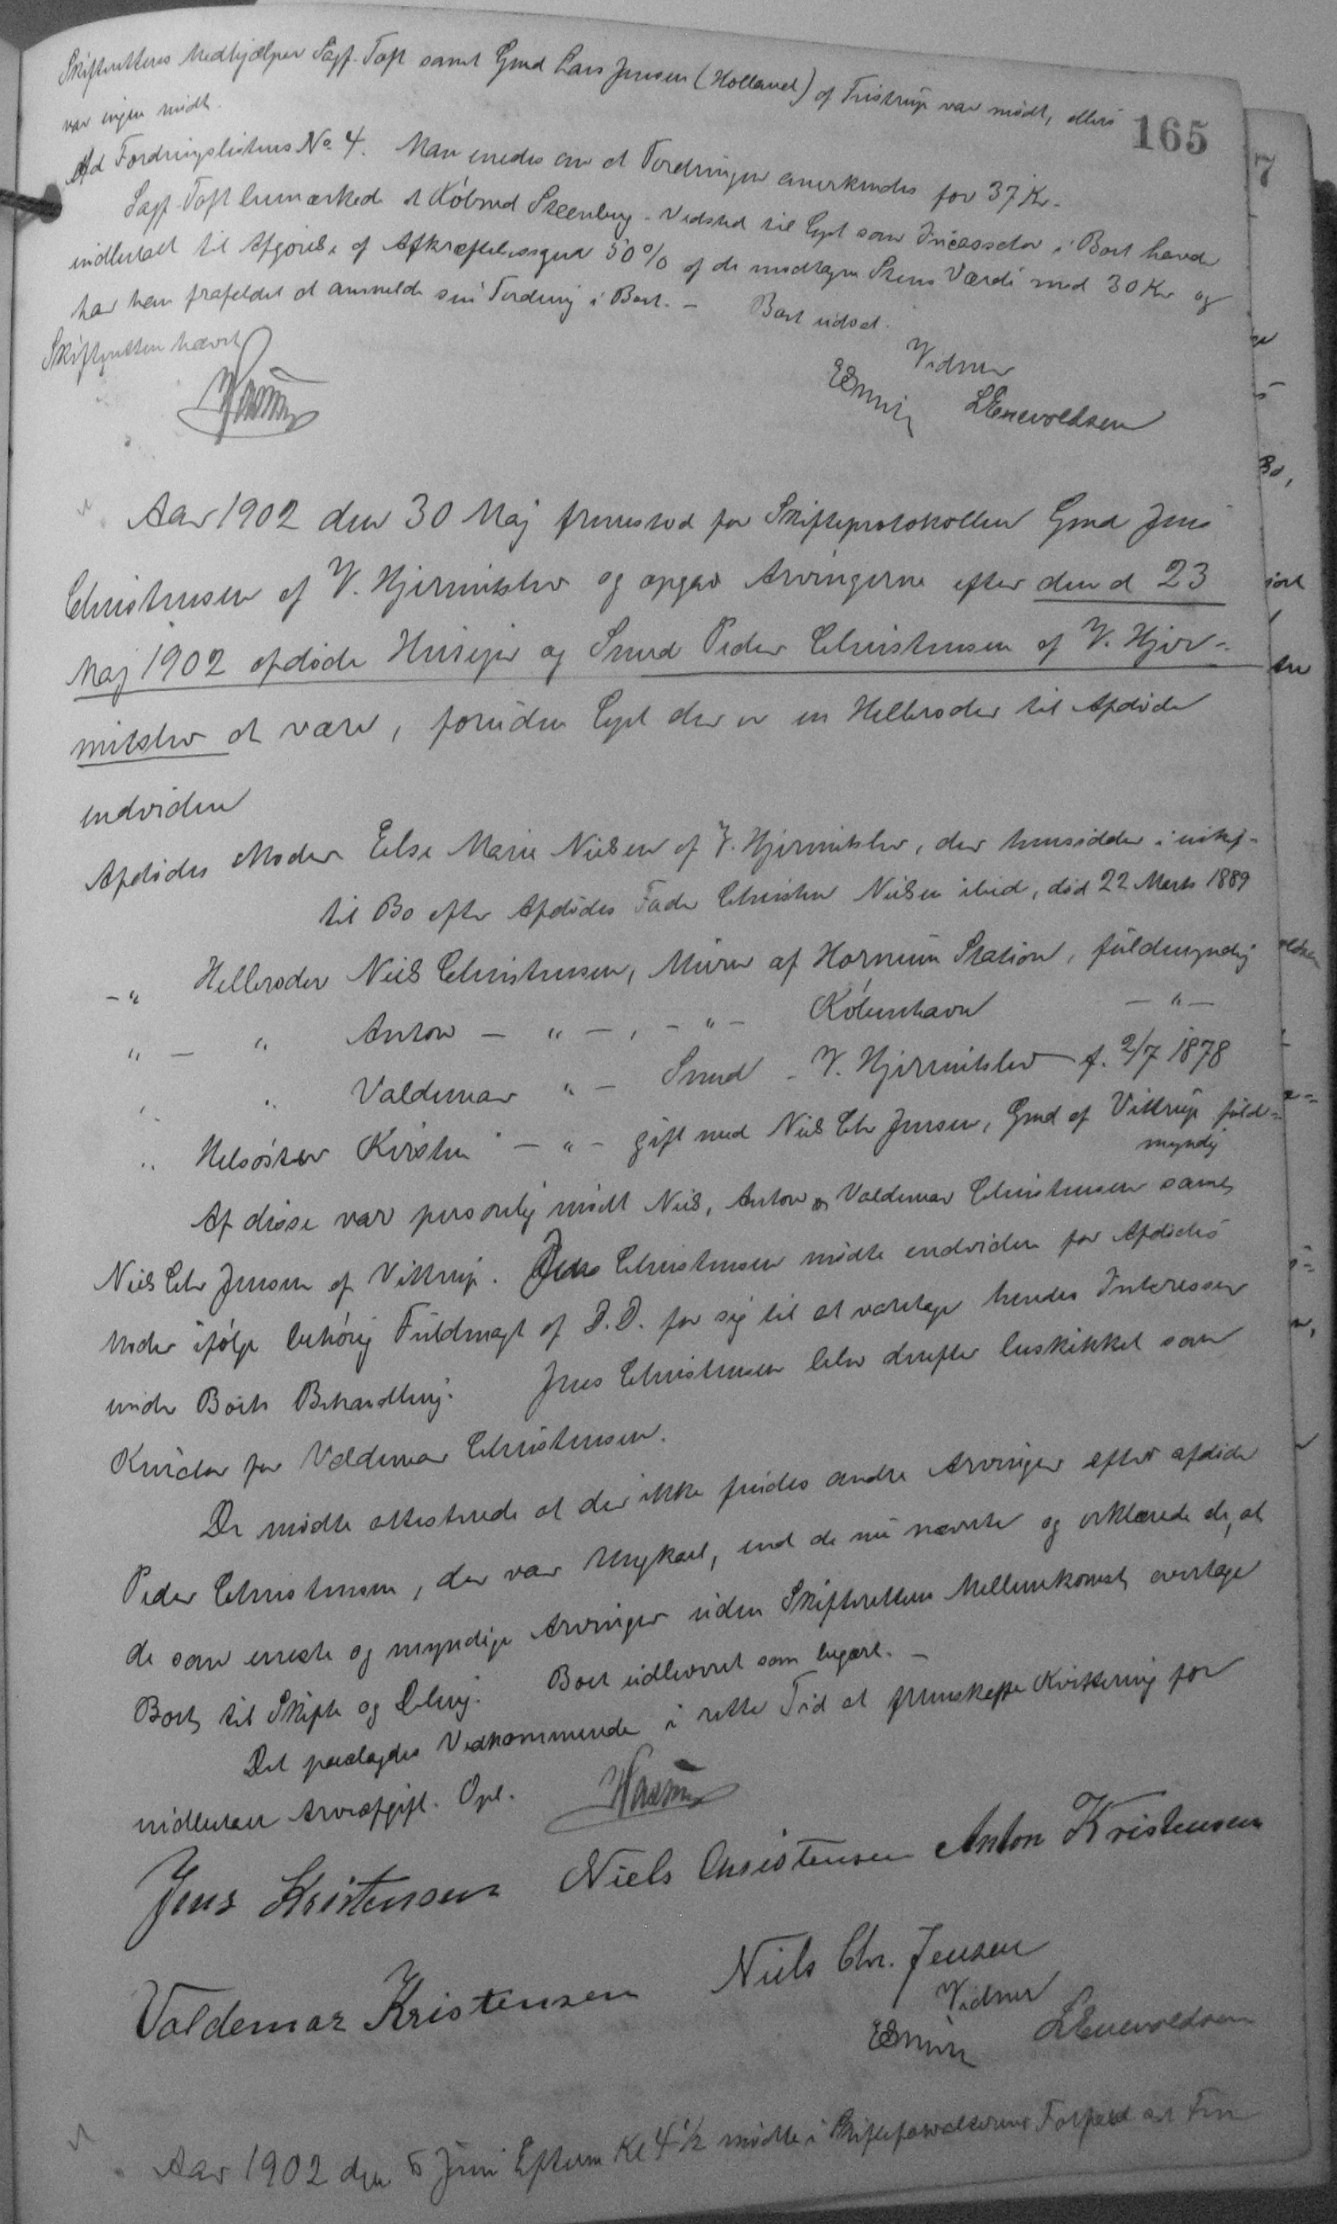 Skifterettens Medhjælper Sagf. Toft samt Gmd Lars Jensen (Holland) af Tustrup var mødt, ellers
165
var ingen mødt.
Ad Fordringslistens No 4. Man enedes om at Fordringen anerkendes for 37 Kr.
Sagf. Toft bemærkede at Købmd Steenberg - Vedsted til Lyst som Incassator i Boet havde
indbetalt til Afgørelse af Afkræftelsessagen 50% af de modtagne Stens Værdi med 30 Kr og
har han frafaldet at anmelde sin Fordring i Boet. - Boet udsat.
Skifteretten hævet
Vidner
LEnevoldsen
Aar 1902 den 30 Maj fremstod for Skifteprotokollen Gmd Jens
Christensen af V. Hjermitslev og opgav Arvingerne efter den d 23
Maj 1902 afdøde Husejer og Smed Peder Christensen af V. Hjer-
mitslev at være, foruden Cpt der er en Helbroder til Afdøde
endvidere
Afdødes Moder Else Marie Nielsen af V. Hjermitslev, der hensidder i uskif-
til Bo efter Afdødes Fader Christen Nielsen ibid, død 22 Marts 1889
-" Helbroder Niels Christensen, Murer af Hornum Station, fuldmyndig
" - " Anton - " - , - " - København - " -
" " Valdemar " - Smed - V. Hjermitslev f. 2/7 1878
" Helsøster Kirstine - " - gift med Niels Chr Jensen, Gmd af Vittrup fuld=
myndig
Af disse var personlig mødt Niels, Anton og Valdemar Christensen samt
Niels Chr Jensen af Vittrup. Jens Christensen mødte endvidere for Afdødes
Moder ifølge behørig Fuldmagt af D.D. for sig til at varetage hendes Interesser
under Boets Behandling. Jens Christensen blev derefter beskikket som
Kurator for Valdemar Christensen.
De mødte attesterede at der ikke findes andre Arvinger efter afdøde
Peder Christensen, der var Ungkarl, end de nu nævnte og erklærede de, at
de som eneste og myndige Arvinger uden Skifterettens Mellemkomst overtage
Boet til Skifte og Deling. Boet udleveret som begært. -
Det paalagdes Vedkommende i rette Tid at fremskaffe Kvittering for
indbetalt Arveafgift. Opl.
Jens Kristensen Niels Christensen Anton Kristensen
Valdemar Kristensen Niels Chr. Jensen
Vidner
LEnevoldsen
Aar 1902 den 5 Juni Efterm Kl 4 1/2 mødte i Skifteforvalterens Forfald